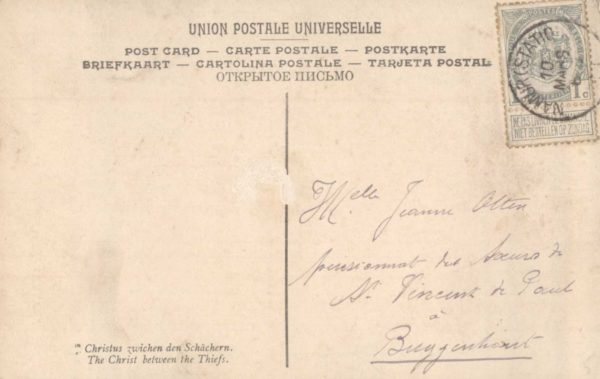 UNION POSTALE UNIVERSELLE
POST CARD — CARTE POSTALE — POSTKARTE
BRIEFKAART — CARTOLINA POSTALE — TARJETA POSTAL
ОТКРЫТОЕ ПИСЬМО
NAMUR (STATIO
10
MARS
1c
NIET BESTELLEN OP ZONDAG
Melle Jeanne Otten
pensionnat des Sœurs de
St Vincent de Paul
à
Buggenhout
Christus zwichen den Schächern.
The Christ between the Thiefs.